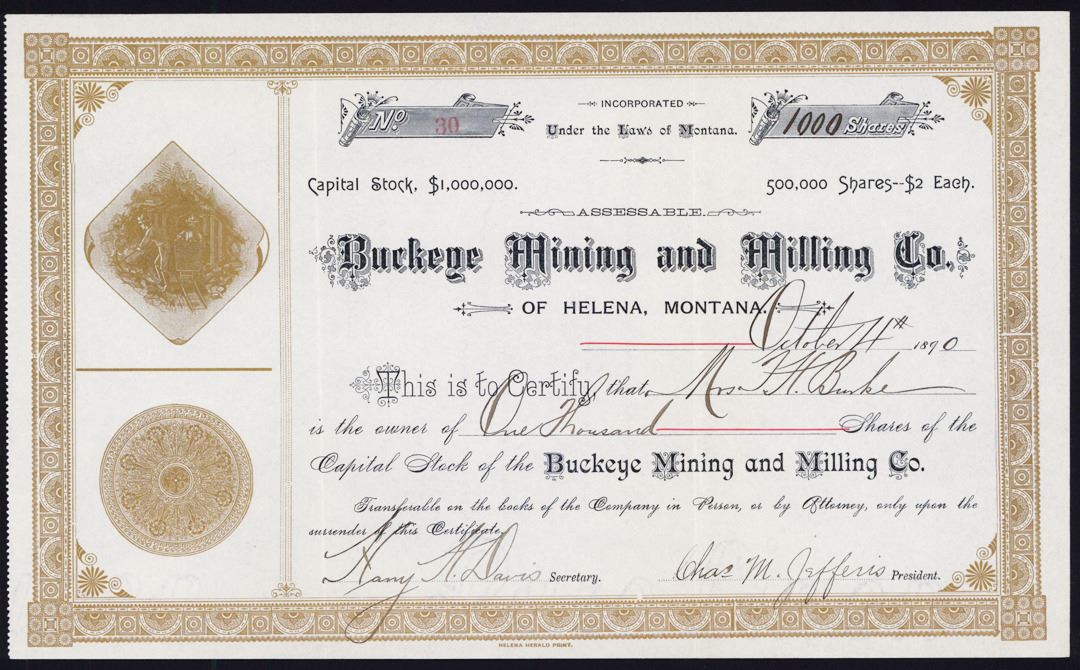 INCORPORATED
No. 30
Under the Laws of Montana.
1000 Shares
Capital Stock, $1,000,000.
500,000 Shares--$2 Each.
ASSESSABLE.
Buckeye Mining and Milling Co.
OF HELENA, MONTANA.
October 4th 1890
This is to Certify, that Mrs. F. H. Burke
is the owner of One Thousand Shares of the
Capital Stock of the Buckeye Mining and Milling Co.
Transferable on the books of the Company in Person, or by Attorney, only upon the
surrender of this Certificate.
Harry H. Davis Secretary.
Chas M. Jefferis President.
HELENA HERALD PRINT.